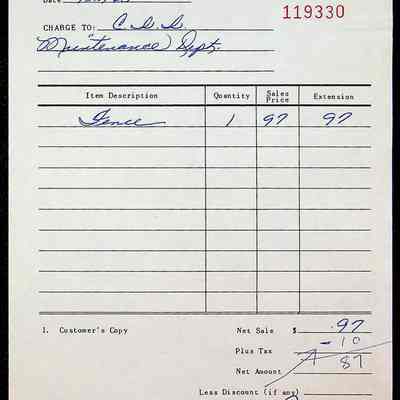 119330
CHARGE TO: C.D.D.
Maintenance Dept.
Item Description Quantity Sales Price Extension
Fence 1 97 97
1. Customer's Copy Net Sale $ .97
Plus Tax -10
Net Amount 87
Less Discount (if any)